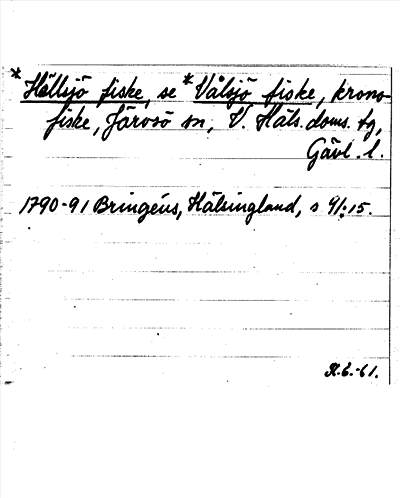 *Hällsjö fiske, se *Vålsjö fiske, krono-
fiske, Järvsö sn, V. Häls. doms. tg,
Gävl. l.
1790-91 Bringéus, Hälsingland, s 91:15.
R.E.-61.